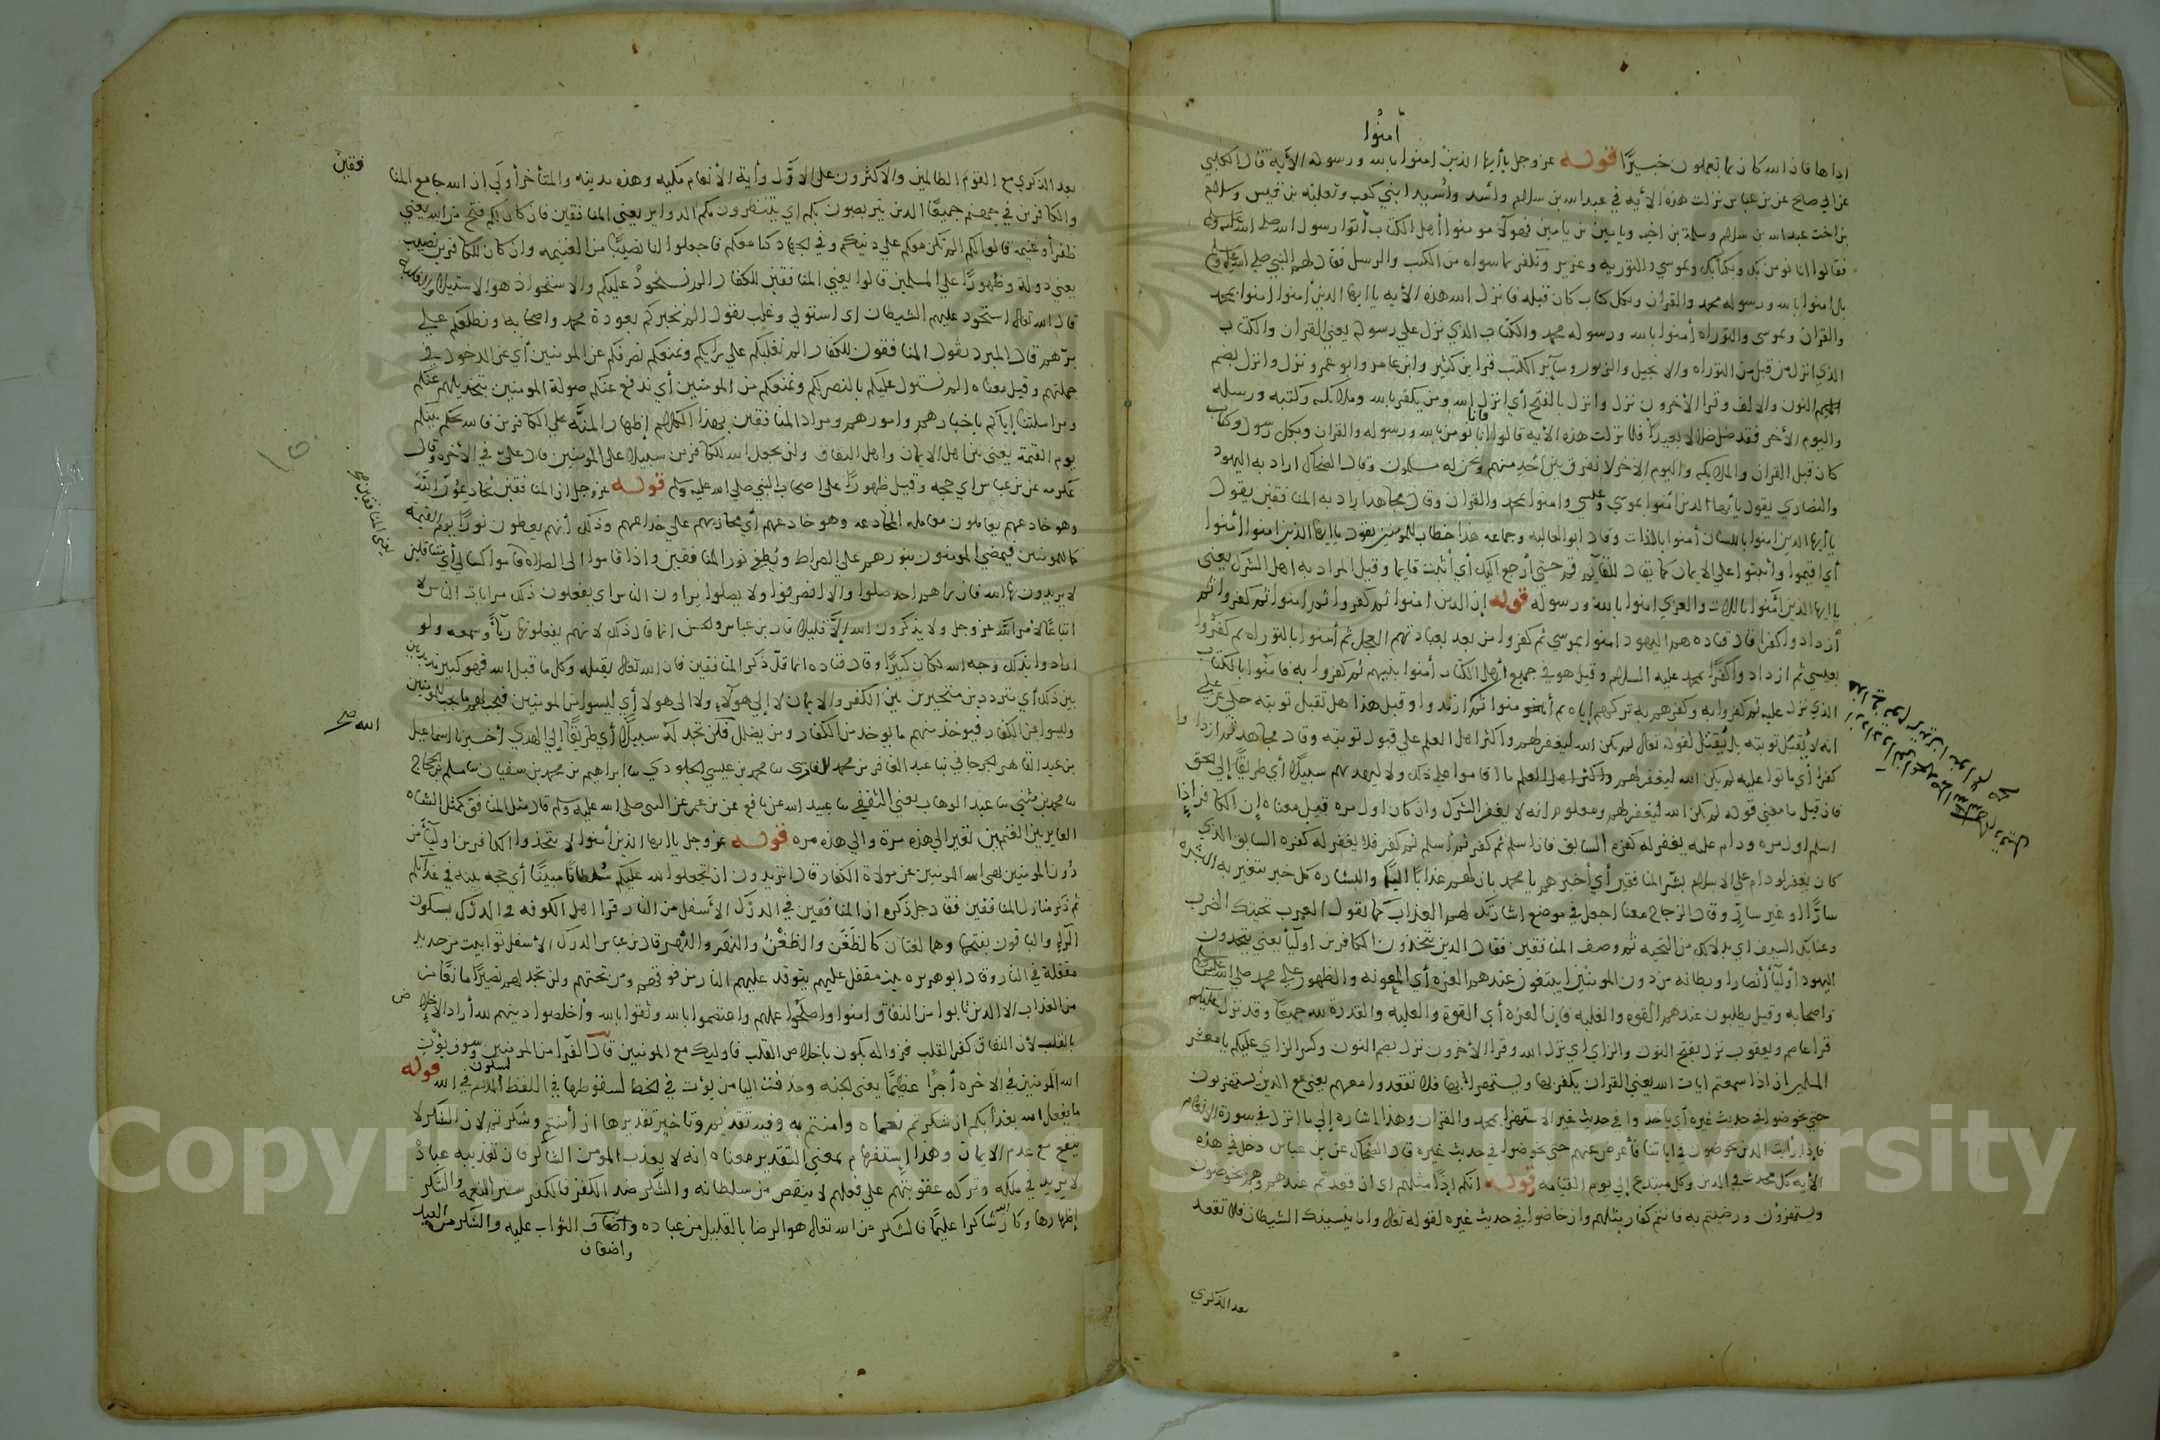 آمنوا
اداها فان الله كان بما تعملون خبيرًا قوله عز وجل يا أيها الذين امنوا بالله ورسوله الاية قال الكلبي
عن ابي صالح عن بن عباس نزلت هذه الأية في عبد الله بن سلام وأسد وأسيد ابني كعب وثعلبة بن قيس وسلام
بن اخت عبد الله بن سلام وسلمة بن اخيه ويامين بن يامين فهولآ مومنوا أهل الكتاب أتوا رسول الله صلى الله عليه وسلم
فقالوا انا نومن بك وبكتابك وبموسي والتوريه وعزير ونكفر بما سواه من الكتب والرسل فقال لهم النبي صلى الله عليه وسلم
بل امنوا بالله ورسوله محمد والقران وبكل كتاب كان قبله فانزل الله هذه الأيه يا ايها الذين أمنوا امنوا بمحمد
والقران وبموسى والتوراه أمنوا بالله ورسوله محمد والكتاب الذي نزل علي رسوله يعني القران والكتاب
الذي انزل من قبل من التوراه والانجيل والزبور وسآئر الكتب قرا بن كثير وابن عامر وابو عمرو نزل وانزل بضم
النون والالف وقرا الأخرون نزل وانزل بالفتح أي انزل الله ومن يكفر بالله وملائكته وكتبه ورسله
واليوم الأخر فقد ضل ضلالا بعيدا فلما نزلت هذه الأيه قالوا فانا نومن بالله ورسوله والقران وبكل رسول وكتاب
كان قبل القران والملايكه واليوم الاخر لا نفرق بين أحد منهم ونحن له مسلمون وقال الضحاك اراد به اليهود
والنصاري يقول يأيها الذين أمنوا بموسي وعيسى وامنوا بمحمد والقران وقال مجاهد اراد به المنافقين يقول
يا أيها الذين امنوا باللسان أمنوا بالقلب وقال ابو العاليه وجماعه هذا خطاب للمومنين يقول يا ايها الذين امنوا أمنوا
أي اقيموا واثبتوا علي الايمان كما يقال للقآئم قم حتي أرجع اليك أي أثبت قايما وقيل المراد به اهل الشرك يعني
يا ايها الذين أمنوا باللات والعزي امنوا بالله ورسوله قوله إن الذين امنوا ثم كفروا ثم امنوا ثم كفروا ثم
أزدادوا كفرا قال قتاده هم اليهود امنوا بموسي ثم كفروا من بعد بعبادتهم العجل ثم أمنوا بالتوراه ثم كفروا
بعيسي ثم ازدادوا كفرًا بمحمد عليه السلام وقيل هو في جميع أهل الكتاب أمنوا بنبيهم ثم كفروا به فامنوا بالكتاب
الذي نزل عليه ثم كفروا به وكفرهم به تركهم اياه ثم
انه لا يُقبل توبته بل يُقتل لقوله تعالى لم يكن الله ليغفر لهم واكثر اهل العلم علي قبول توبته وقال مجاهد ثم ازدادوا
كفرا أي ماتوا عليه لم يكن الله ليغفر لهم ما اقاموا على ذلك ولا ليهديهم سبيلًا أي طريقًا إلى الحق
فان قيل ما معني قوله لم يكن الله ليغفر لهم ومعلوم انه لا يغفر الشرك وان كان اول مره قيل معناه إن الكافر إذا
اسلم اول مره ودام عليه يغفر له كفره السابق فاذا اسلم ثم كفر ثم أسلم ثم كفر فلا يغفر له كفره السابق الذي
كان يغفر لو دام على الاسلام بشر المنافقين أي أخبرهم يا محمد بان لهم عذابًا اليمًا والبشاره كل خبر يتغير به البشره
سارًّا او غير سارٍّ وقال الزجاج معناه اجعل في موضع بشارتك لهم العذاب كما تقول العرب تحيتك الضرب
وعتابك السيف اي بدلا لك من التحيه ثم وصف المنافقين فقال الذين يتخذون الكافرين اوليآ يعني يتخذون
اليهود أوليآ أنصارا وبطانه من دون المومنين أيبتغون عندهم العزه أي المعونه والظهور علي محمد صلى الله عليه وسلم
واصحابه وقيل يطلبون عندهم القوه والغلبه فإن العزه أي القوة والغلبه والقدره لله جميعًا وقد نزل عليكم
قرا عاصم ويعقوب نزل بفتح النون والزاي اي نزل الله وقرا الأخرون نزل بضم النون وكسر الزاي عليكم يا معشر
المسلمين ان اذا سمعتم ايات الله يعني القران يكفر بها ويستهزأ بها فلا تقعدوا معهم يعني مع الذين يستهزئون
حتي يخوضوا في حديث غيره أي ياخذوا في حديث غير الاستهزا بمحمد والقران وهذا اشاره إلى ما انزل في سورة الانعام
فإذا رأيت الذين يخوضون في اياتنا فأعرض عنهم حتي يخوضوا في حديث غيره قال الضحاك عن بن عباس دخل في هذه
الأية كل محدث في الدين وكل مبتدع إلى يوم القيامه قوله انكم إذًا مثلهم اي ان قعدتم عندهم وهم يخوضون
ويستهزؤن ورضيتم به فانتم كفار مثلهم وان خاضوا في حديث غيره لقوله تعالى واما ينسينك الشيطان فلا تقعد
بعد الذكري
بعد الذكري مع القوم الظالمين والاكثرون على الاول وأية الأنعام مكيه وهذه مدينه والمتأخر أولى ان الله جامع المنا
فقين
والكافرين في جهنم جميعًا الذين يتربصون بكم اي ينتظرون بكم الدواير يعني المنافقين فان كان لكم فتح من الله يعني
ظفر أو غنيمه قالوا لكم الم نكن معكم علي دينكم وفي الجهاد كنا معكم فاجعلوا لنا نصيبًا من الغنيمه وان كان للكافرين نصيب
يعني دولة وظهورًا علي المسلمين قالوا يعني المنافقين للكفار الم نستحوذ عليكم والاستحواذ هو الاستيلا والغلبه
قال الله تعالى استحوذ عليهم الشيطان اى استولي وغلب يقول الم نخبركم بعورة محمد واصحابه ونطلعكم علي
سرّهم قال المبرد يقول المنافقون للكفار الم نغلبكم علي رايكم ونمنعكم نصرفكم عن المومنين أي عن الدخول في
جملتهم وقيل معناه الم نستول عليكم بالنصر لكم ونمنعكم من المومنين أي ندفع عنكم صولة المومنين بتخذيلهم عنكم
ومراسلتنا إياكم باخبارهم وامورهم ومراد المنافقين بهذا الكلام إظهار المنّه علي الكافرين فالله يحكم بينكم
يوم القيمة يعني بين اهل الايمان واهل النفاق ولن يجعل الله للكافرين سبيلا على المومنين قال علي في الأخره وقال
عكرمه عن بن عباس اي حجه وقيل ظهورًا على اصحاب النبي صلى الله عليه وسلم قوله عز وجل ان المنافقين يُخادِعُونَ اللّه
وهو خادعهم يعاملون معاملة المخادعه وهو خادعهم أي مجازيهم علي خداعهم وذلك أنهم يعطون نورًا يوم القيمة
يعني المنافقين صح
كالمومنين فيمضي المومنون بنورهم علي الصراط ويُطفى نور المنافقين واذا قاموا الى الصلاه قاموا كسالي أي متثاقلين
لا يريدون بها الله فان راهم احد صلوا والا انصرفوا ولا يصلوا يراون الناس اي يفعلون ذلك مراياة الناس لا
اتباعًا لأمر الله عز وجل ولا يذكرون الله إلا قليلا قال بن عباس والحسن انما قال ذلك لانهم يفعلونها ريآً وسمعه ولو
ارادوا بذلك وجه الله لكان كثيرًا وقال قتاده انما قلّ ذكر المنافقين لان الله تعالى لم يقبله وكل ما قبل الله فهو كثير مذبذبين
بين ذلك أي مترددين متحيرين بين الكفر والايمان لا إلي هولآء ولا الى هولا أي ليسوا من المومنين فيجب لهم ما يجب للمومنين
وليسوا من الكفار فيوخذ منهم ما يوخذ من الكفار ومن يضلل فلن تجد له سبيلًا أي طريقًا إلى الهدي أخبرنا إسماعيل
الله صح
بن عبد القاهر الجرجاني نا عبد الغافر بن محمد الفارسى نا محمد بن عيسي الجلودي نا ابراهيم بن محمد بن سفيان نا مسلم بن الحجاج
نا محمد بن مثني نا عبد الوهاب يعني الثقفي نا عبيد الله عن نافع عن بن عمر عن النبى صلى الله عليه وسلم قال مثل المنافق كمثل الشاه
العايره بين الغنمين تعير الي هذه مرة والي هذه مره قوله عز وجل يا ايها الذين أمنوا لا تتخذوا الكافرين اوليآ من
دُون المومنين نهى الله المومنين عن موالاة الكفار قال اتريدون ان تجعلوا لله عليكم سُلطانًا مبينًا أي حجه بينه في عذابكم
ثم ذكر منازل المنافقين فقال جل ذكره ان المنافقين في الدرك الأسفل من النار قرا اهل الكوفه في الدرك بسكون
الرآء والباقون بفتحها وهما لغتان كالظعَن والظعْنُ والنهَر والنهْر قال بن عباس الدرك الأسفل توابيت من حديد
مقفلة في النار وقال ابو هريره بيت مقفل عليهم يتوقد عليهم النار من فوقهم ومن تحتهم ولن تجد لهم نصيرًا مانعًا من
من العذاب الا الذين تابوا من النفاق وامنوا واصلحوا عملهم واعتصموا بالله وثقوا بالله وأخلصوا دينهم لله أراد الاخلاص
بالقلب لأن النفاق كفر القلب فزواله يكون باخلاص القلب فاوليك مع المومنين قال الفرّا من المومنين وسوف يؤت
الله المومنين في الاخره أجرًا عظيمًا يعنى الجنه وحذفت اليا من يؤت في الخط لسقوطها في اللفظ لسكون اللام في الله قوله
ما يفعل الله بعذابكم ان شكرتم نعماه وامنتم به وفيه تقديم وتاخير تقديرها ان أمنتم وشكرتم لان الشكر لا
ينفع مع عدم الايمان وهذا إستفهام بمعني التقدير معناه إنه لا يعذب المومن الشاكر فان تعذيبه عباده
لا يزيد في ملكه وتركه عقوبتهم علي فعلهم لا ينقص من سلطانه والشكر ضد الكفر فالكفر ستر النعمه والشكر
إظهارها وكان الله شاكرا عليمًا فالشكر من الله تعالى هو الرضا بالقليل من عباده واضعاف الثواب عليه والشكر من العبد
واضعاف
Copyright © King Saud University